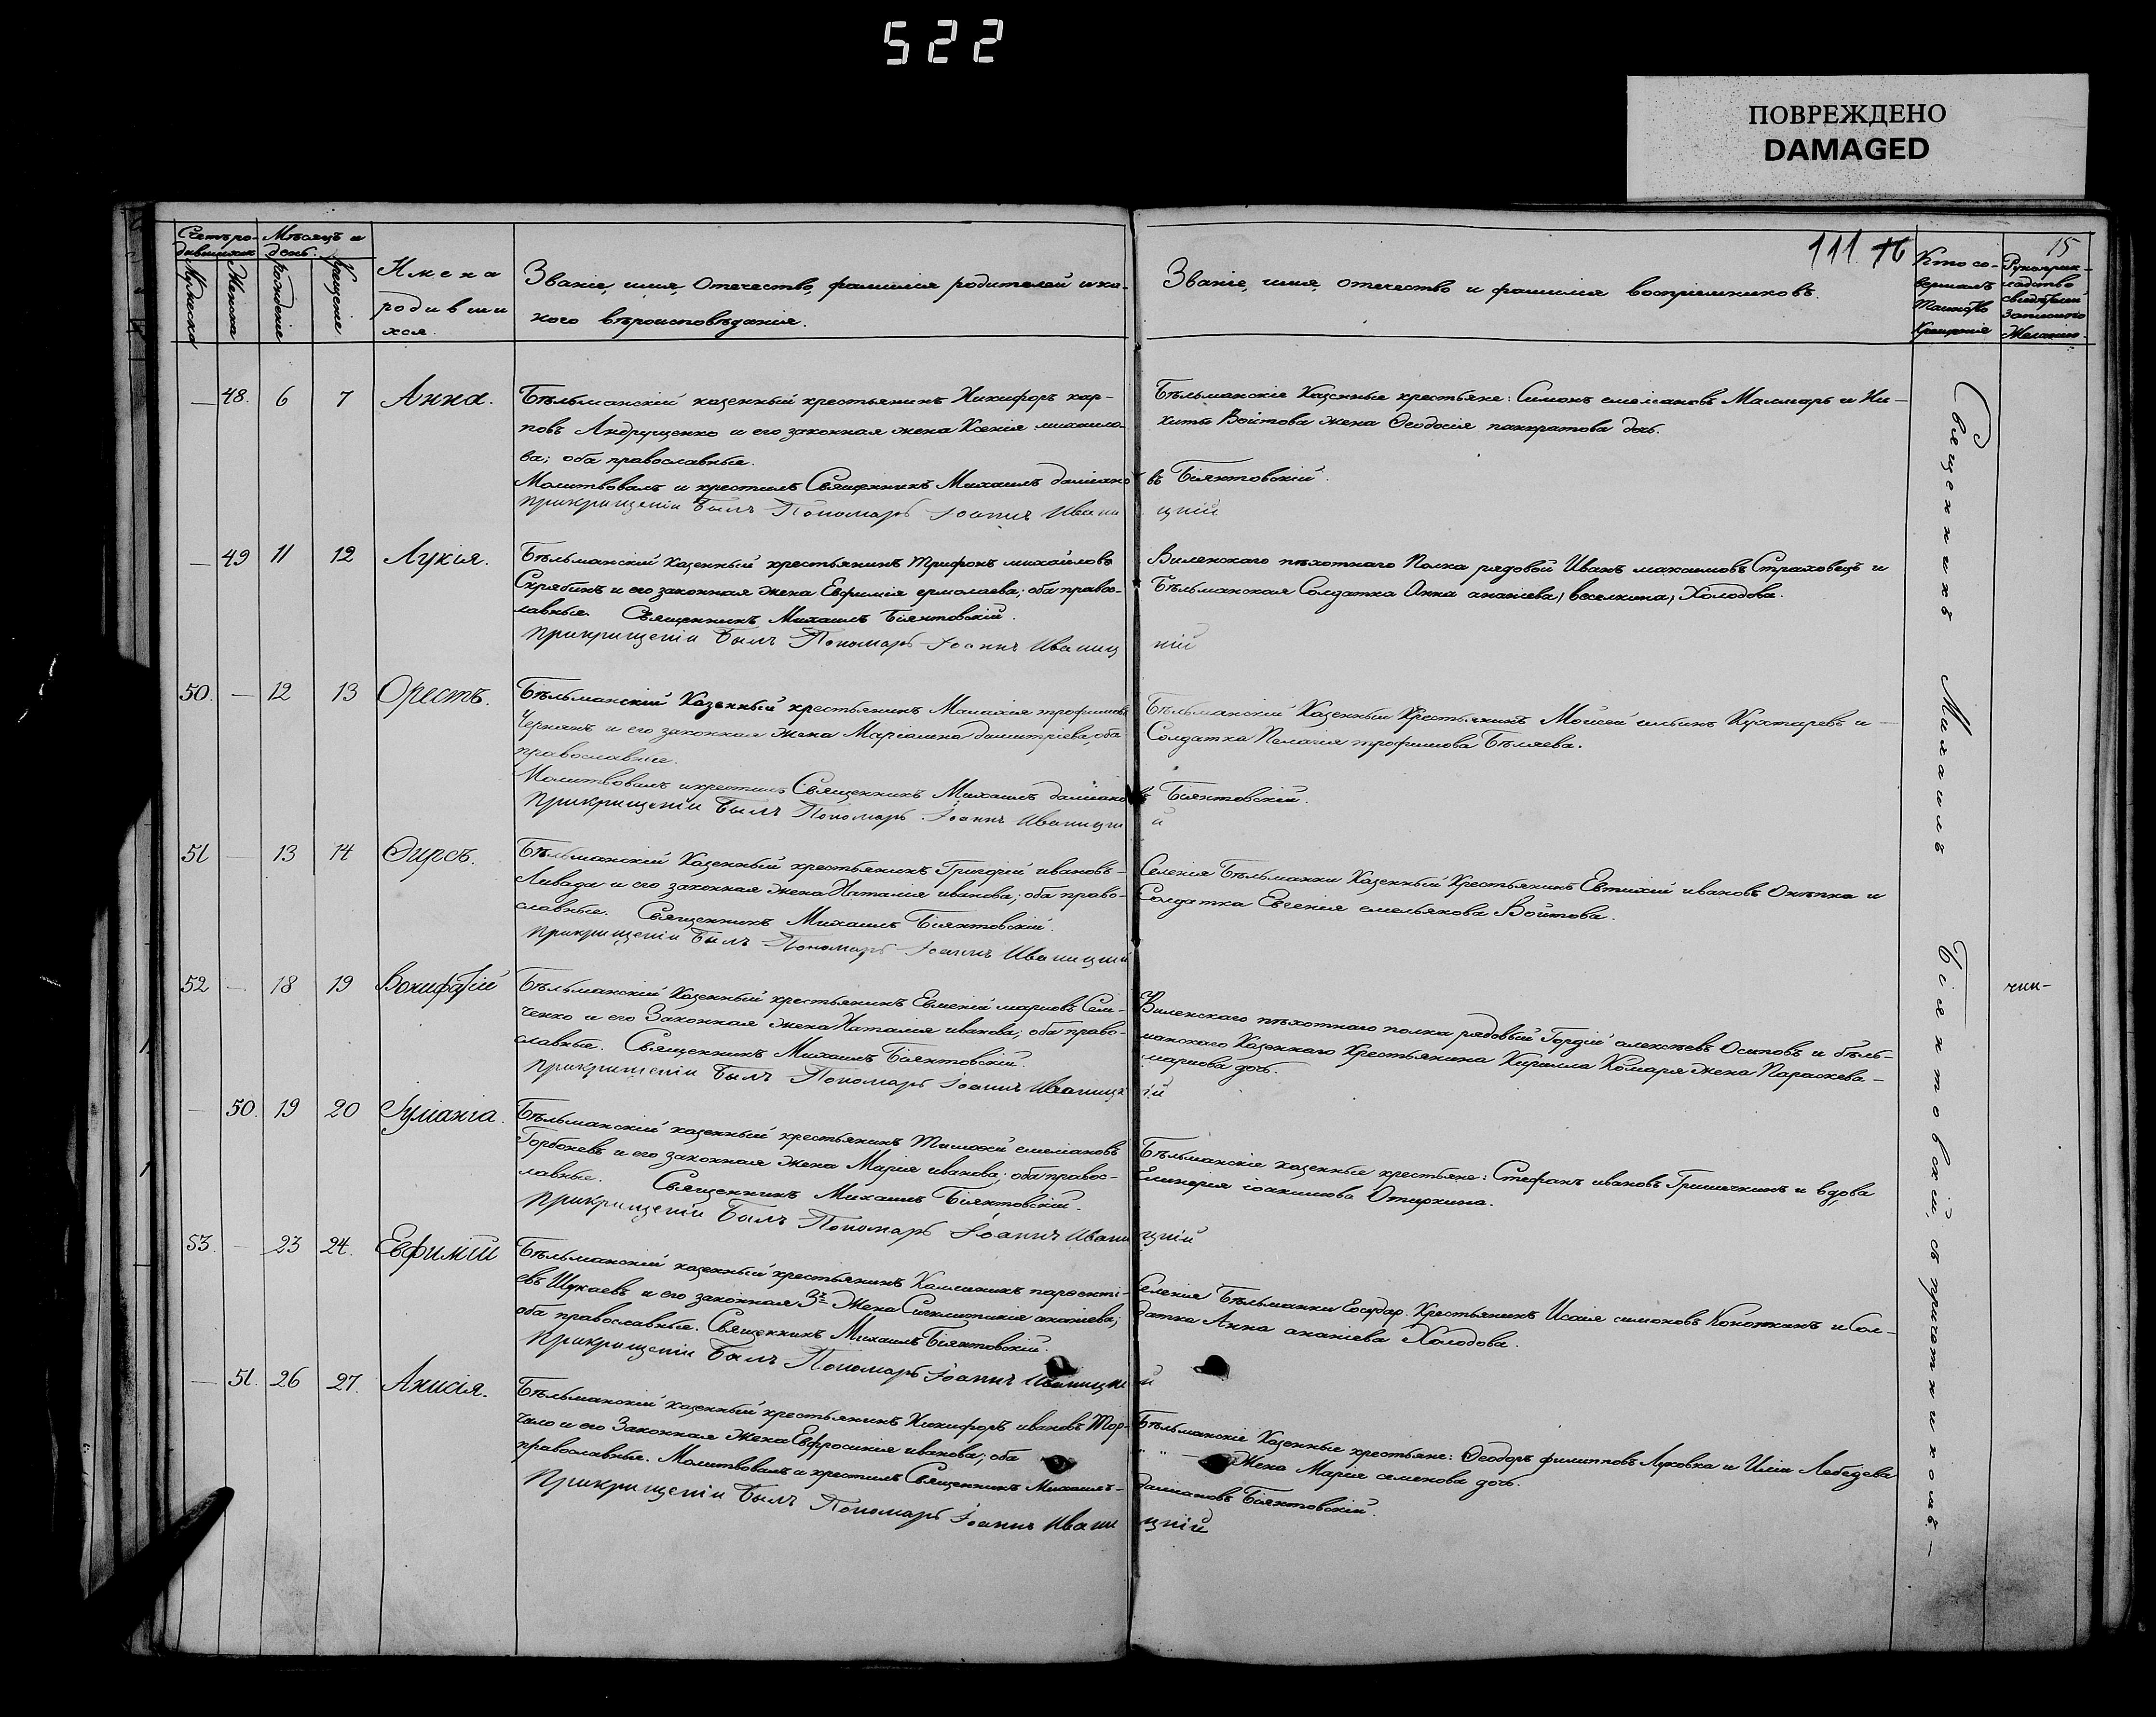 522
ПОВРЕЖДЕНО
DAMAGED
Счетъ ро-
дившихся
Мужеска
Женска
Мѣсяцъ и
день.
рожденіе
крещеніе
Имена
родивши
хся.
Званіе, имя, отечество, фамилія родителей и ка-
кого вѣроисповѣданія.
111. 76
15
Званіе, имя, отечество и фамилія воспріемниковъ.
Кто со-
вершалъ
таинство
крещенія
Рукоприк-
ладство
свидѣтелей
записи по
желанію.
— 48. 6 7 Анна.
Бѣльманскій казенный крестьянинъ Никифоръ кар-
повъ Андрущенко и его законная жена Ксенія михаило-
ва; оба православные.
Молитвовалъ и крестилъ Священникъ Михаилъ даміано
въ Біянтовскій.
прикрищеніи Былъ Пономарь Іоаннъ Ивани
цкій
Бѣльманскіе Казенные крестьяне: Симонъ емеліановъ Маляръ и Ни-
киты Войтова жена Ѳеодосія панкратова дочь.
— 49 11 12 Лукія.
Бѣльманскій казенный крестьянинъ Трифонъ михайловъ
Скрябинъ и его законная жена Евфимія ермолаева; оба право-
славные. Священникъ Михаилъ Біянтовскій.
прикрищеніи Былъ Пономарь Іоаннъ Иваниц
кій
Виленскаго пѣхотнаго Полка рядовой Иванъ максимовъ Страховецъ и
Бѣльманская Солдатка Анна ананіева, Холодова.
50. — 12 13 Орестъ.
Бѣльманскій Казенный крестьянинъ Малахія трофимовъ
и его законная жена Маріамна димитріева, оба
православные.
Молитвовалъ и крестилъ Священникъ Михаилъ даміано
въ Біянтовскій.
прикрищеніи Былъ Пономарь Іоаннъ Иваницкі
й
Бѣльманскій Казенный Крестьянинъ Мойсей ильинъ Кухтаревъ и —
Солдатка Пелагія трофимова Бѣляева.
51 — 13 14 Ѳирсъ.
Бѣльманскій Казенный крестьянинъ Григорій ивановъ
Ливада и его законная жена Наталія иванова; оба право-
славные. Священникъ Михаилъ Біянтовскій.
прикрищеніи Былъ Пономарь Іоаннъ Иваницкій
Селенія Бѣльманки Казенный Крестьянинъ Евтихій ивановъ и
Солдатка Евгенія емельянова Войтова.
52 — 18 19 Вонифатій
Бѣльманскій Казенный крестьянинъ Евменій марковъ Сем-
ченко и его Законная жена Наталія иванова; оба право-
славные. Священникъ Михаилъ Біянтовскій.
прикрищеніи Былъ Пономарь Іоаннъ Иваницк
ій
Виленскаго пѣхотнаго полка рядовый Гордій алексѣевъ Осиповъ и бѣль-
манскаго Казеннаго Крестьянина Кирилла Комаря жена Параскева —
маркова дочь.
чик-
— 50. 19 20 Іуліанія.
Бѣльманскій казенный крестьянинъ Тимоѳей емеліановъ
Горбоневъ и его законная жена Марія иванова; оба правос-
лавные. Священникъ Михаилъ Біянтовскій.
прикрищеніи Былъ Пономарь Іоаннъ Ивани
цкій
Бѣльманскіе казенные крестьяне: Стефанъ ивановъ Гришечкинъ и вдова
Гликерія іоакимова Отиркина.
53. — 23 24. Евфимій
Бѣльманскій казенный крестьянинъ Каллиникъ
евъ Шукаевъ и его законная 3я жена Сигклитикія ананіева;
оба православные. Священникъ Михаилъ Біянтовскій.
прикрищеніи Былъ Пономарь Іоаннъ Иваницкі
й
Селенія Бѣльманки Государ. Крестьянинъ Исаія симоновъ и Сол-
датка Анна ананіева Холодова.
— 51. 26 27. Анисія.
Бѣльманскій казенный крестьянинъ Никифоръ ивановъ Тор-
чило и его Законная жена Евфросинія иванова; оба
православные. Молитвовалъ и крестилъ Священникъ Михаилъ —
даміановъ Біянтовскій.
прикрищеніи Былъ Пономарь Іоаннъ Ивани
цкій
Бѣльманскіе Казенные крестьяне: Ѳеодоръ филипповъ Луковка и Иліи Лебедева
" " — жена Марія семенова дочь.
Священникъ Михаилъ Біянтовскій, съ причетникомъ. —